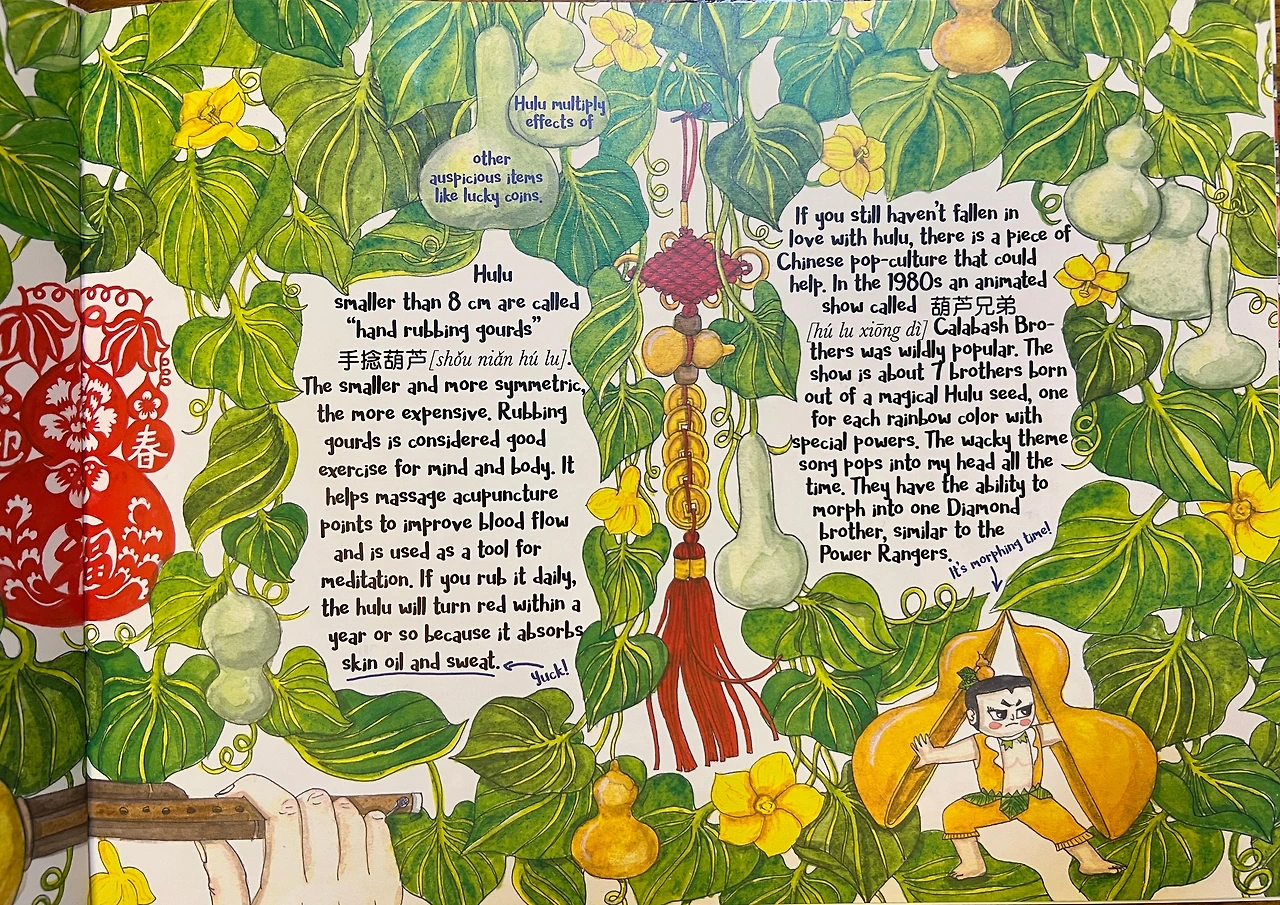 Hulu multiply
effects of
other
auspicious items
like lucky coins.
迎
春
福
Hulu
smaller than 8 cm are called
“hand rubbing gourds”
手捻葫芦 [shǒu niǎn hú lu].
The smaller and more symmetric,
the more expensive. Rubbing
gourds is considered good
exercise for mind and body. It
helps massage acupuncture
points to improve blood flow
and is used as a tool for
meditation. If you rub it daily,
the hulu will turn red within a
year or so because it absorbs
skin oil and sweat.
Yuck!
If you still haven't fallen in
love with hulu, there is a piece of
Chinese pop-culture that could
help. In the 1980s an animated
show called 葫芦兄弟
[hú lu xiōng dì] Calabash Bro-
thers was wildly popular. The
show is about 7 brothers born
out of a magical Hulu seed, one
for each rainbow color with
special powers. The wacky theme
song pops into my head all the
time. They have the ability to
morph into one Diamond
brother, similar to the
Power Rangers.
It's morphing time!